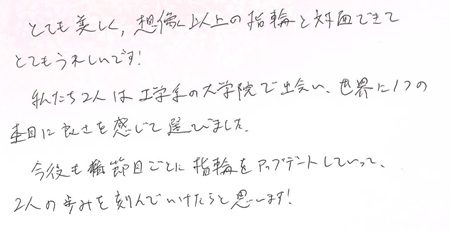 とても美しく、想像以上の指輪と対面できて
とてもうれしいです!
私たち2人は工学系の大学院で出会い、世界に1つの
杢目に良さを感じて選びました。
今後も節目ごとに指輪をアップデートしていって、
2人の歩みを刻んでいけたらと思います!